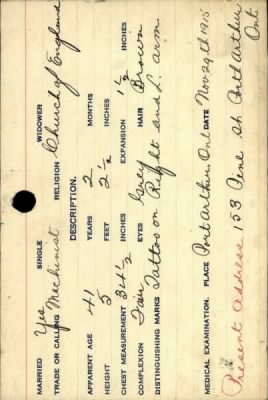 MARRIED Yes SINGLE WIDOWER
TRADE OR CALLING Machinist RELIGION Church of England
DESCRIPTION.
APPARENT AGE 41 YEARS 2 MONTHS
HEIGHT 5 FEET 2 1/2 INCHES
CHEST MEASUREMENT 34 1/2 INCHES EXPANSION 1 1/2 INCHES
COMPLEXION Fair EYES Grey HAIR Brown
DISTINGUISHING MARKS Tattoo on Right and L. arm
MEDICAL EXAMINATION. PLACE Port Arthur Ont DATE Nov 29th 1915
Present Address 153 Pene St Port Arthur
Ont.